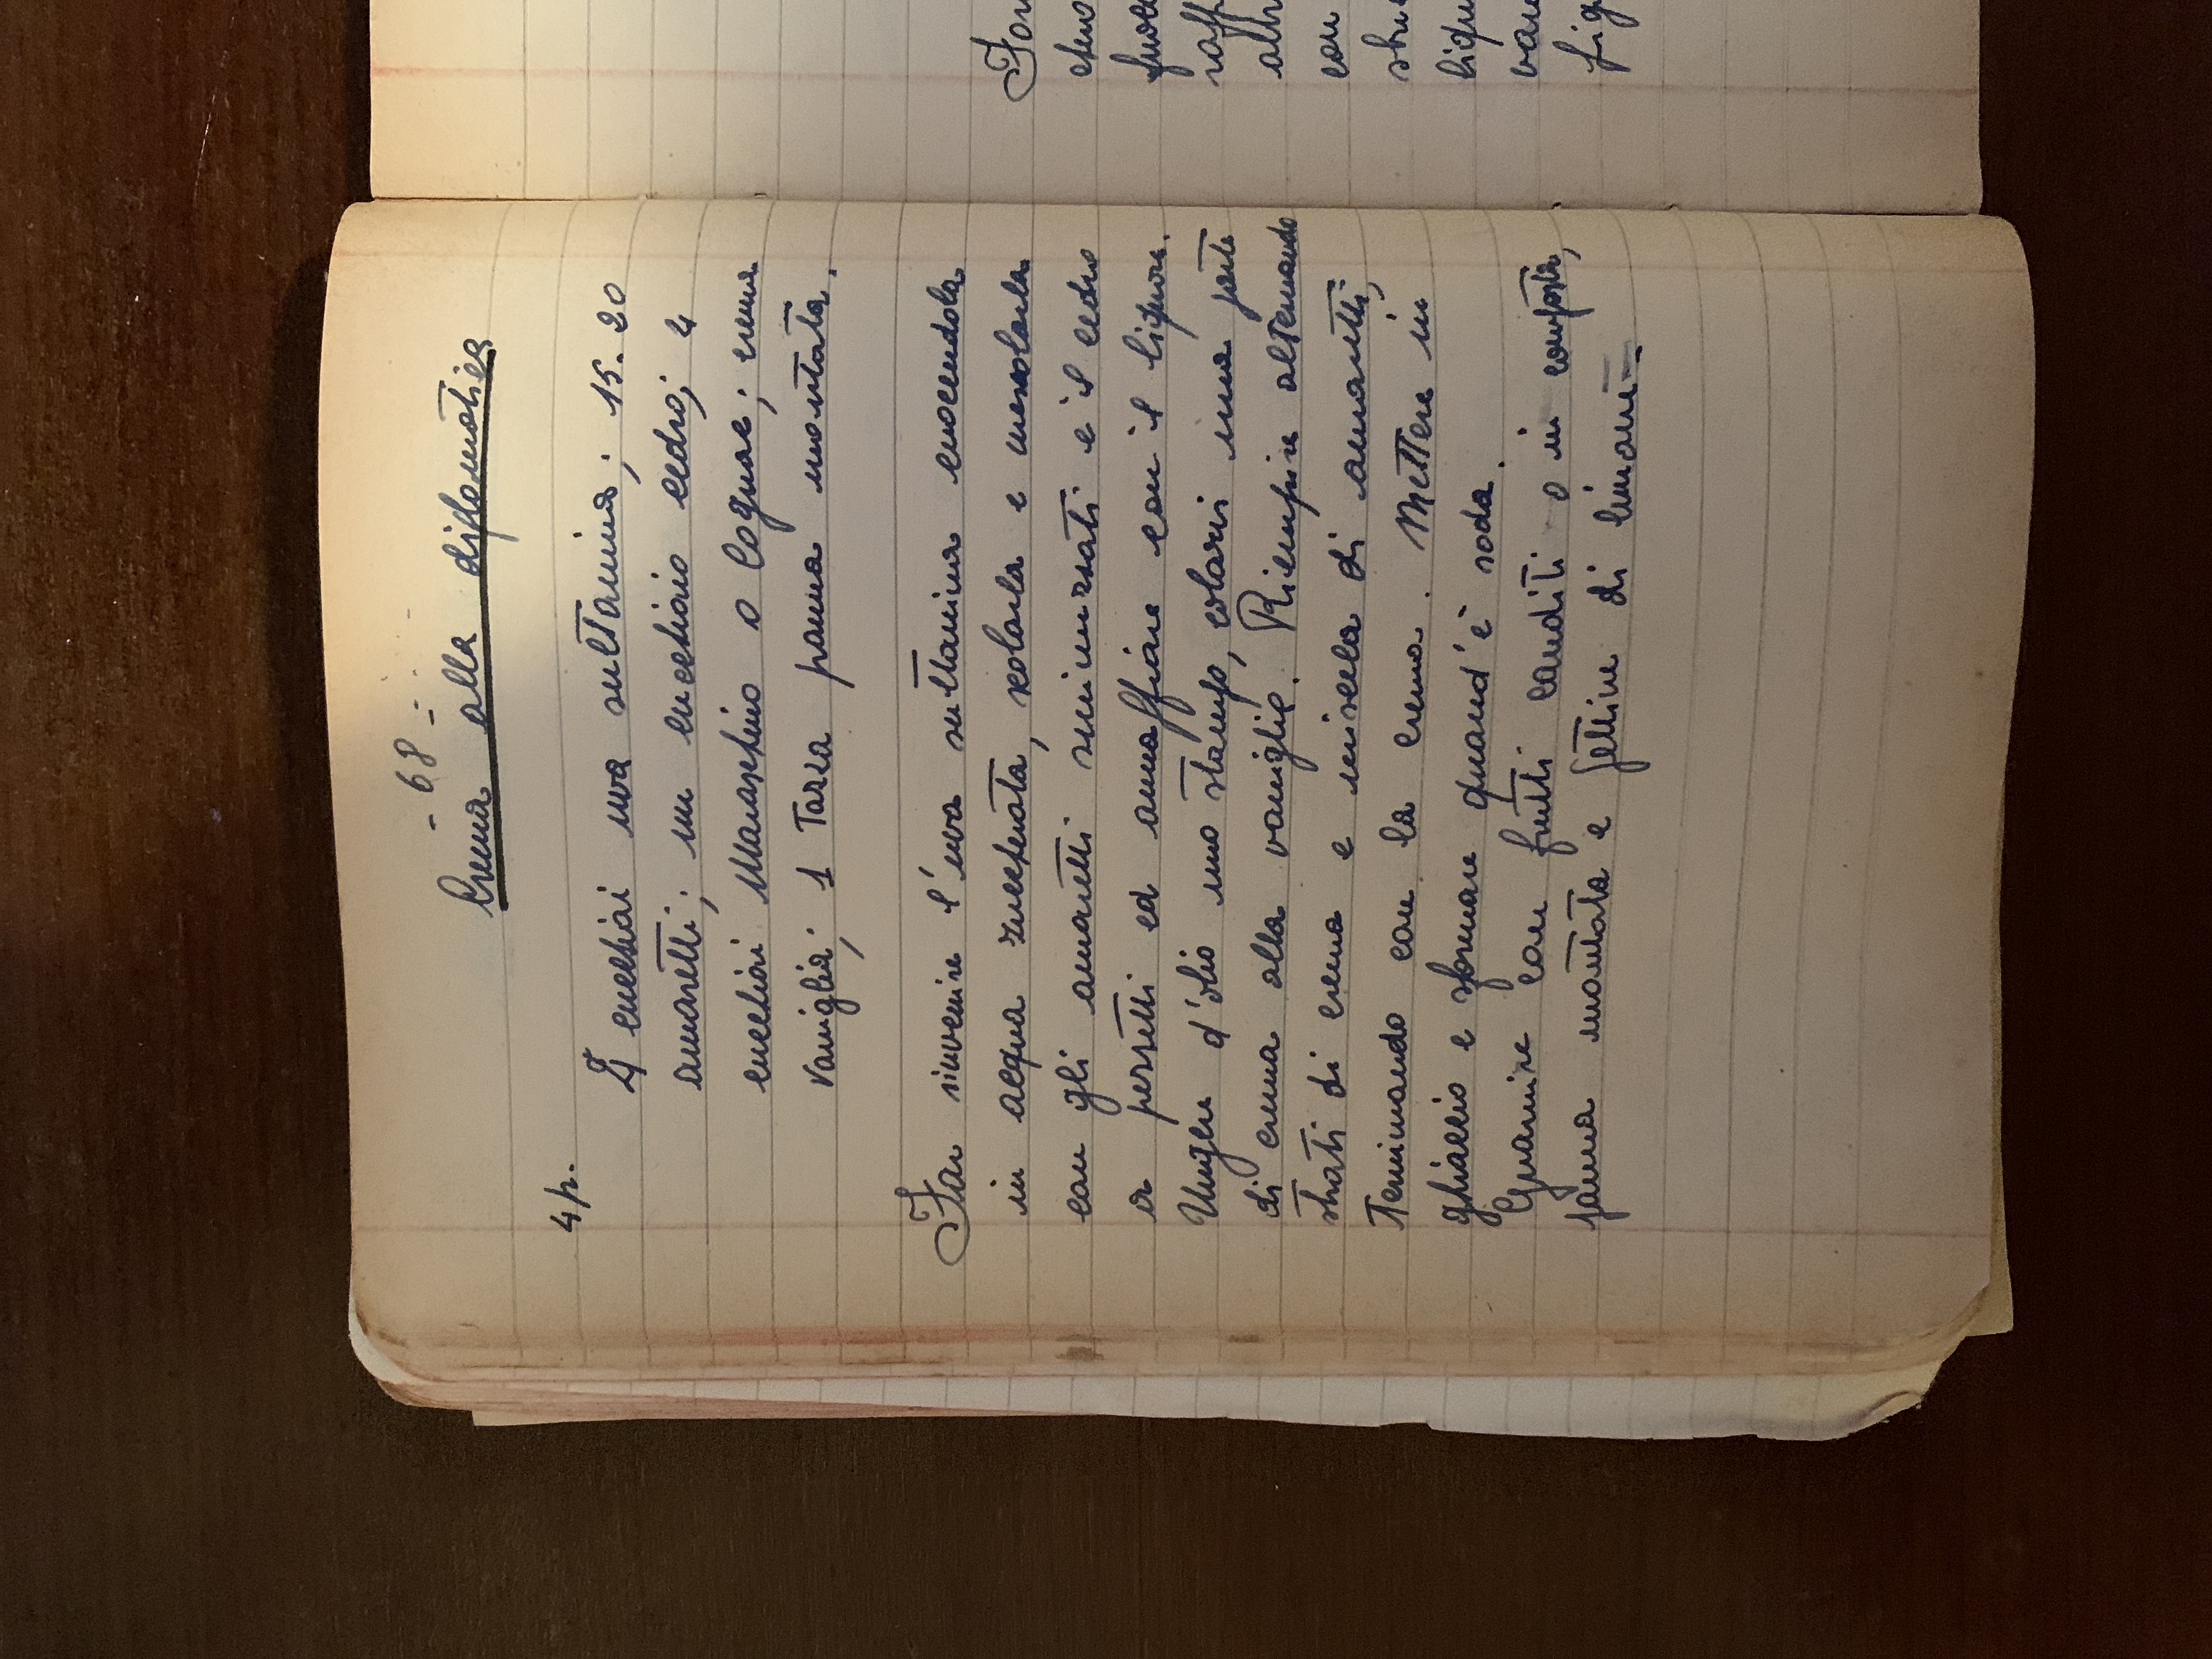 - 68 -
Crema alla diplomatica
4 p.
4 cucchiai uva sultanina; 15. 20
amaretti; un cucchiaio cedro; 4
cucchiai Maraschino o Cognac; crema
vaniglia; 1 Tazza panna montata.
Far rinvenire l'uva sultanina cuocendola
in acqua zuccherata, scolarla e mescolarla
con gli amaretti sminuzzati e il cedro
a pezzetti ed annaffiare con il liquore.
Ungere d'olio uno stampo, colarvi una parte
di crema alla vaniglia. Riempire alternando
strati di crema e miscela di amaretti,
Terminando con la crema. Mettere in
ghiaccio e sformare quand'è soda.
Guarnire con frutti canditi o in composta,
panna montata e fettine di limone -
For
fuoco
raff
altr
con
sbu
liqu
van
fig